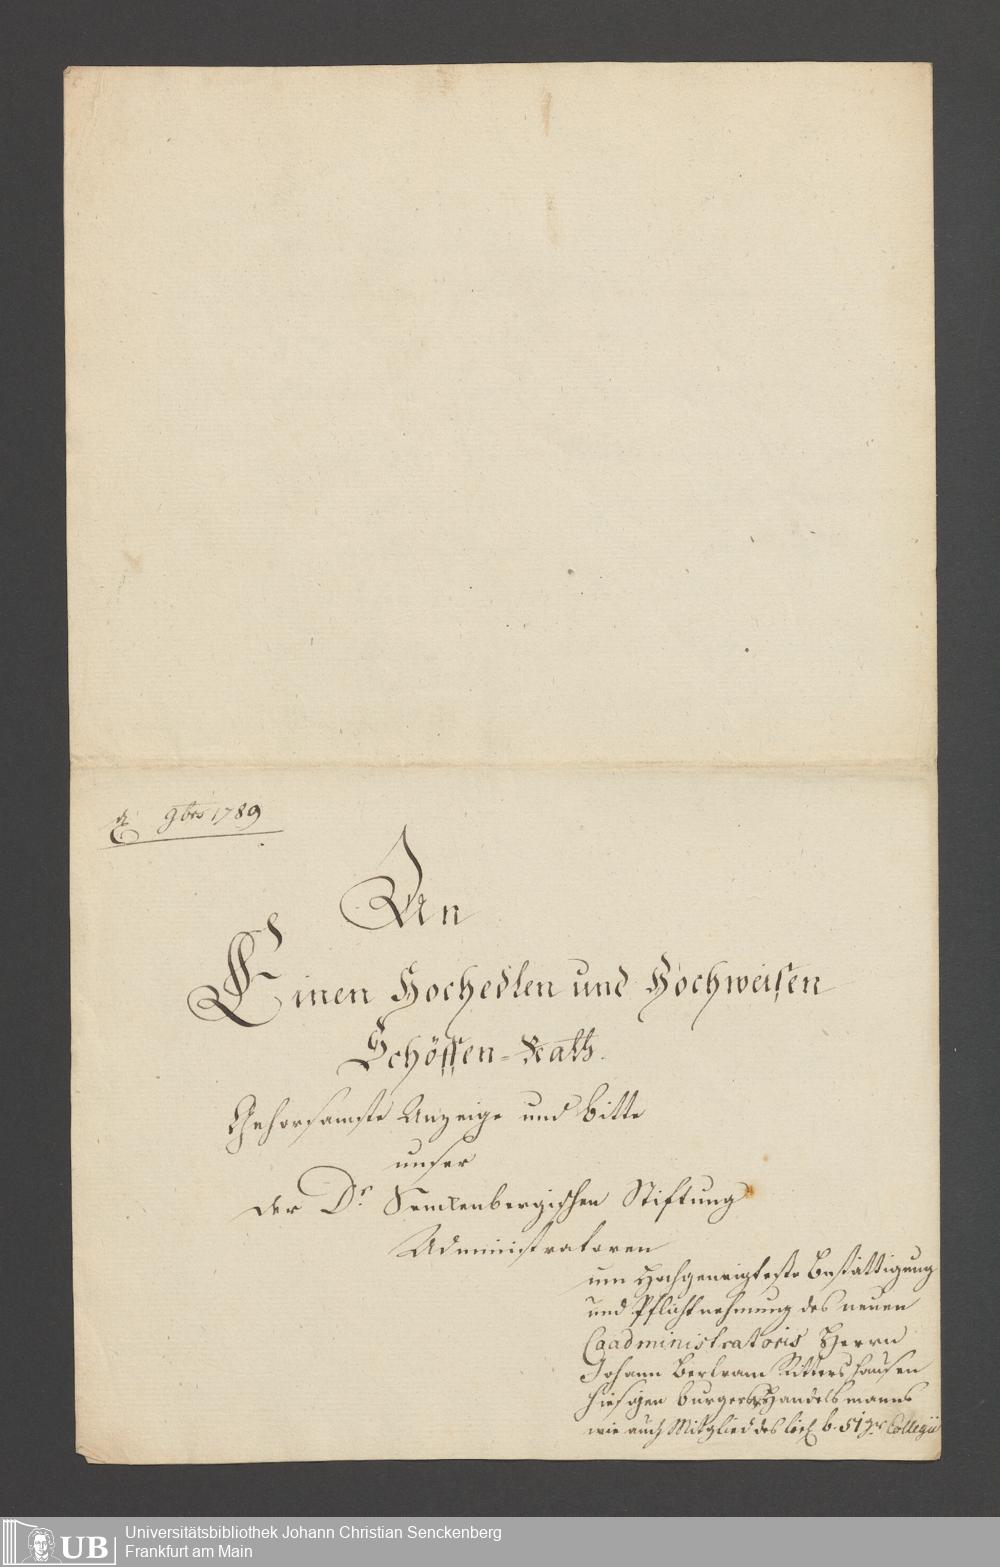 9bris 1789
An
Einen Hochedlen und Hochweisen
Schöffen-Rath.
Gehorsamste Anzeige und bitte
unser
der Dr. Senckenbergischen Stiftung
Administratoren
um Hochgeneigteste Bestättigung
und Pflichtnehmung des neuen
Coadministratoris Herrn
Johann Bertram Rittershausen
hiesigen burgers & Handelsmanns
wie auch Mitglied des löbl. b. 51gr Collegii
Universitätsbibliothek Johann Christian Senckenberg
UB Frankfurt am Main